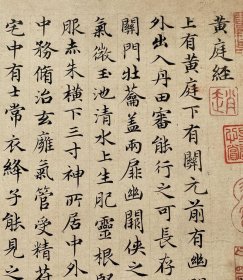 黃庭經
上有黃庭下有關元前有幽
外出入丹田審能行之可長存
關門壯蘥蓋兩扉幽闕俠之
氣微玉池清水上生肥靈根堅
服赤朱橫下三寸神所居中外
中務脩治玄廱氣管受精
宅中有士常衣絳子能見之